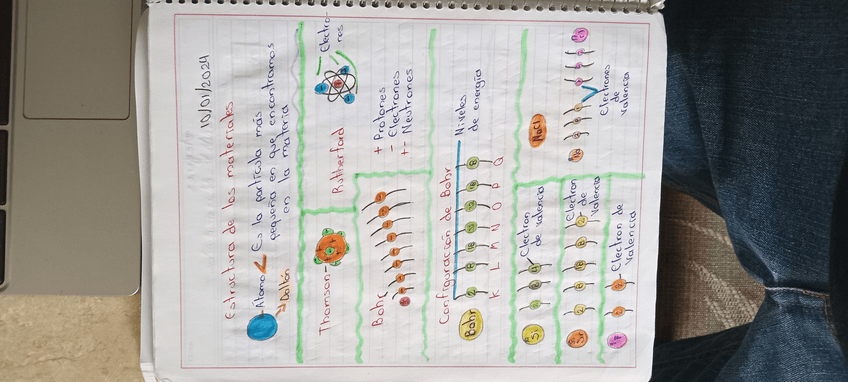 10/01/2024
Estructura de los materiales
Átomo
Dalton
Es la partícula más
pequeña en que encontramos
en la materia
Thomson
Rutherford
Electro-
nes
Bohr
+ Protones
- Electrones
+- Neutrones
Configuración de Bohr
Bohr
Niveles
de energía
K L M N O P Q
Electron
de valencia
NaCl
Electron
de
valencia
Electron de
valencia
Electrones
de
valencia